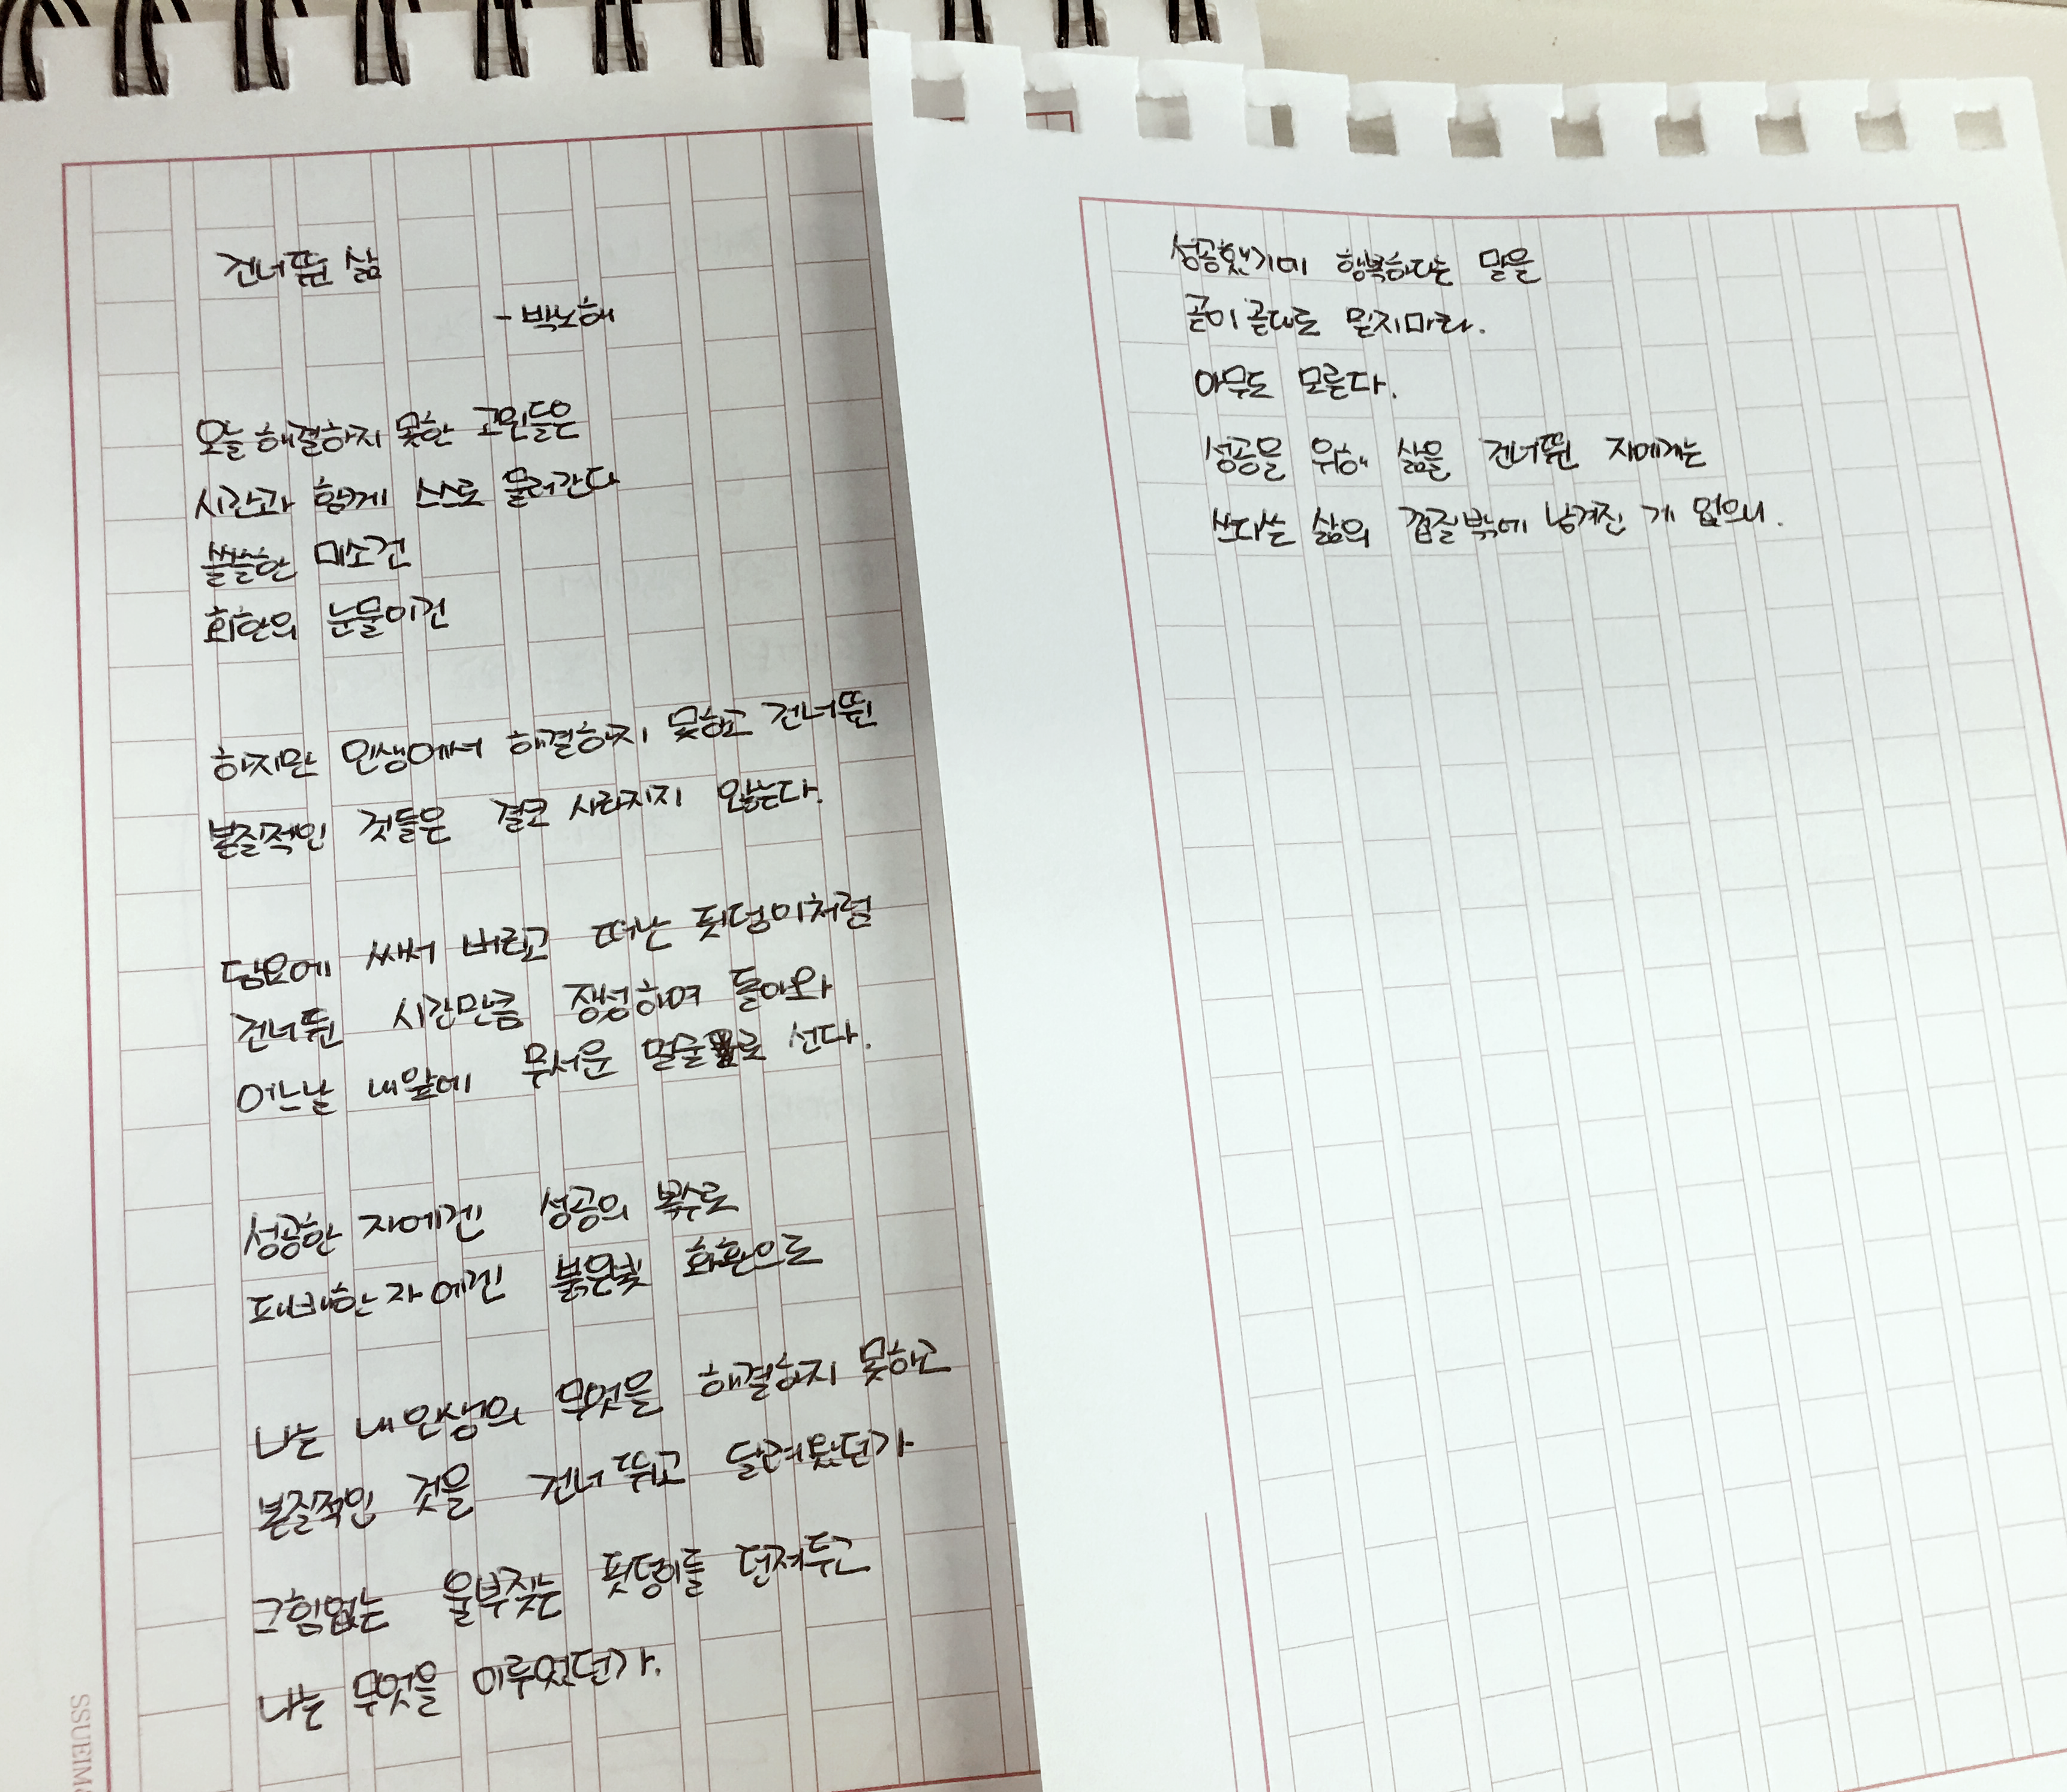 건너뛴 삶
- 박노해
오늘 해결하지 못한 고민들은
시간과 함께 스스로 물러간다
쓸쓸한 미소건
회한의 눈물이건
하지만 인생에서 해결하지 못하고 건너뛴
본질적인 것들은 결코 사라지지 않는다.
담요에 싸서 버리고 떠난 핏덩이처럼
건너뛴 시간만큼 장성하여 돌아와
어느날 내앞에 무서운 얼굴로 선다.
성공한 자에겐 성공의 복수로
패배한자에겐 붉은빛 회환으로
나는 내인생의 무엇을 해결하지 못하고
본질적인 것을 건너뛰고 달려왔던가
그힘없는 울부짖는 핏덩이를 던져두고
나는 무엇을 이루었던가.
성공했기에 행복하다는 말을
곧이 곧대로 믿지마라.
아무도 모른다.
성공을 위해 삶을 건너뛴 자에게는
쓰디쓴 삶의 껍질밖에 남겨진 게 없으니.
SSUEIM